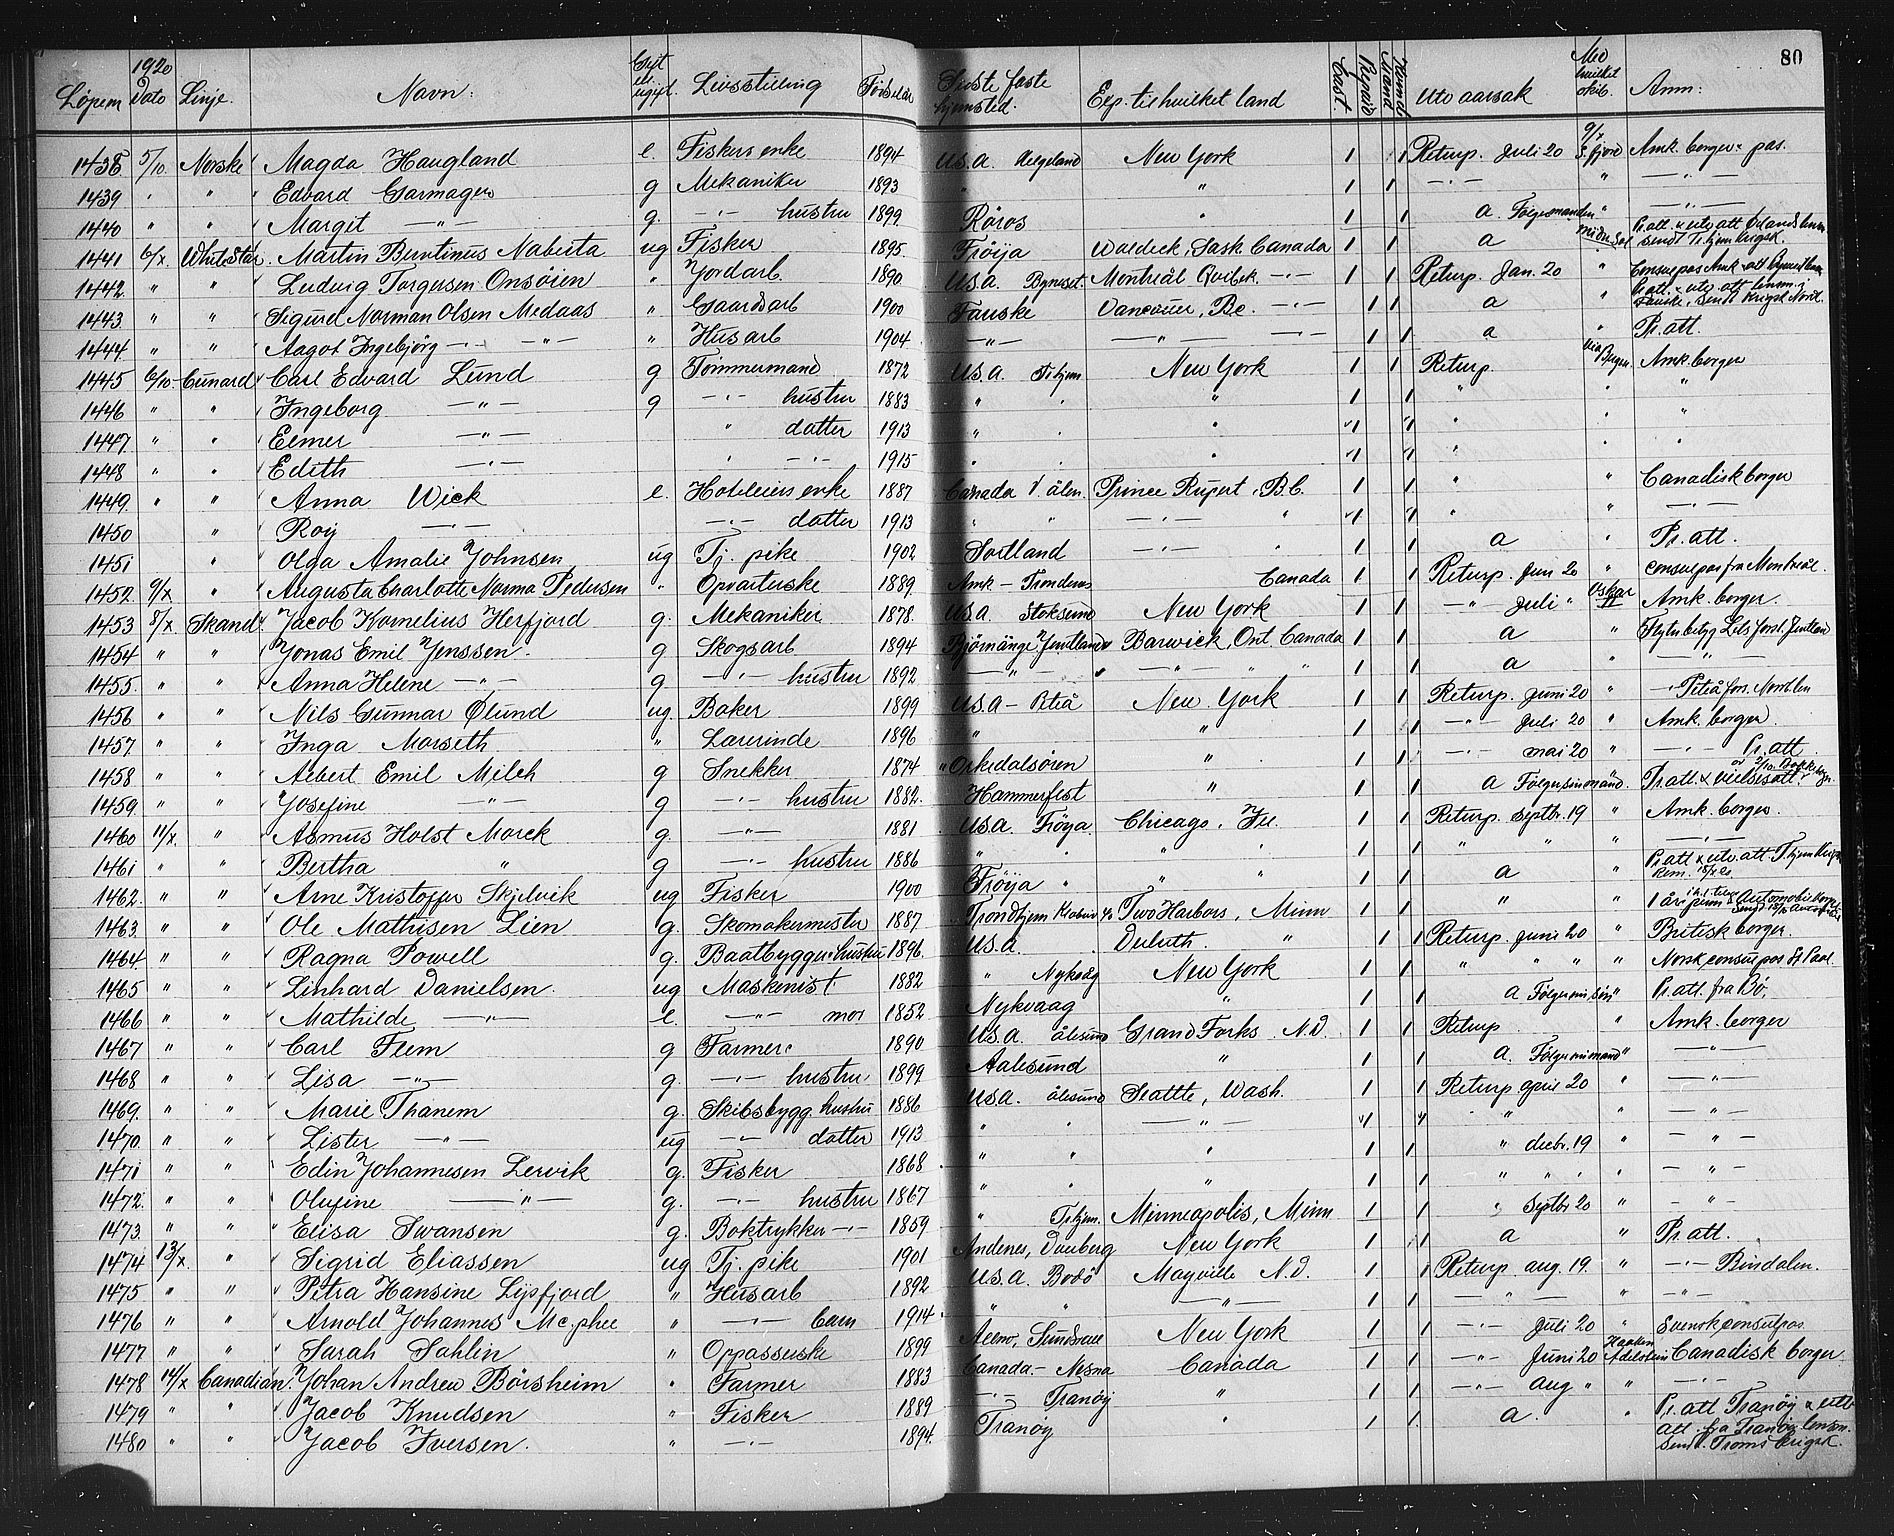 80
1920
Löpem Dato Linje. Navn: Gift el. ugift. Livsstilling Födselår Sidste faste hjemsted. Exp. til hvilket land Utv. aarsak Med hvilket skib. Anm:
1438 5/10. Norske Magda Haugland e. Fiskers enke 1894 U.S.A. Helgeland New York 1 1 Returp. Juli 20 9/x S. fjord Amk. borger pas.
1439 " " Edvard Garmager g Mekaniker 1893 " " 1 1 —"— " —"—
1440 " " Margit —"— g. —"— hustru 1899 Röros " 1 1 a. Fölger manden " —"—
1441 6/x. White Star. Martin Berntinus Naberta ug Fisker 1895. Fröija Waldeck, Sask. Canada 1 1 a Pr. att. & utv. att
1442. " " Ludvig Torgersen Onsöien " Jordarb. 1890 U.S.A. Byneset. Montreal Qvibek. —"— 1 1 Returp. Jan. 20 "
1443. " " Sigurd Norman Olsen Medaas " Gaardsarb 1900 Fauske Vancouver, B.c. —"— 1 1 a "
1444. " " Aagot Ingebjörg —"— " Husarb 1904 —"— —"— —"— 1 1 a " Pr. att.
1445 6/10 Cunard Carl Edvard Lund g Tömmermand 1872 U.S.A. Trhjem New York 1 1 Returp. via Bergen. Amk. borger
1446 " " Ingeborg —"— g —"— hustru 1883 " " " 1 1 " " "
1447. " " Elmer —"— " datter 1913 " " " 1 1 " " "
1448 " " Edith —"— " —"— 1915 " " " 1 1 "
1449. " " Anna Wick e. Hoteleiers enke 1887 Canada Ålen. Prince Rupert, B.C. 1 1 " " Canadisk borger
1450 " Roy —"— —"— datter 1913 " " —"— " 1 1 " " —"—
1451 " Olga Amalie Johnsen ug Tj. pike 1902 Sortland —"— " 1 1 a " Pr. att.
1452. 9/x " Augusta Charlotte Norma Pedersen " Opvarterske 1889. Amk — Trondenes Canada 1 1 Returp. Juni 20 " Consulpas fra Montreal.
1453 8/x Skand. Jacob Kornelius Herfjord g. Mekaniker 1878. U.S.A. Stoksund New York 1 1 —"— Juli " Oskar II Amk. borger.
1454 " " Jonas Emil Jenssen. g Skogsarb 1894 Björnänge Jemtland Barwick, Ont. Canada 1 1 a "
1455. " " Anna Helene —"— g —"— hustru 1892 —"— —"— " " 1 1 a " —"—
1456 " " Nils Gunnar Ölund ug. Baker 1899 U.S.A — Piteå New York 1 1 Returp. Juni 20 "
1457. " " Inga Morseth " Lærerinde 1896 " " 1 1 —"— Juli 20 " Amk. borger.
1458 " " Albert Emil Milch g Snekker 1874 " Orkedalsören " 1 1 —"— mai 20 " —"— Pr. att
1459. " " Josefine —"— g —"— hustru 1882. Hammerfest " 1 1 a Fölger sin mand. " Pr. att. & vielsesatt.
1460 11/x. " Asmus Holst Morck g. —"— 1881 U.S.A Fröya Chicago, Ill. 1 1 Returp. Septbr. 19 " Amk. borger.
1461 " " Bertha " g —"— hustru 1886 " " " 1 1 " " " —"—
1462. " " Arne Kristoffer Skjelvik ug Fisker 1900 Fröija " " " 1 1 a " Pr. att & utv. att. T.hjem
1463. " " Ole Mathisen Lien g. Skomakermester 1887 Trondhjem Two Harbors, Minn 1 1 " "
1464. " " Ragna Powell g. Baatbygger hustru 1896. U.S.A. Duluth. " 1 1 Returp. Juni 20 " Britisk borger.
1465 " " Linhard Danielsen. ug Maskinist 1882 " Nykvåg New York 1 1 " " " " Norsk, consulpas St. Paul.
1466 " " Mathilde —"— e. —"— mor 1852 Nykvaag " 1 1 a Fölger min sön " Pr. att. fra Bö,
1467 " " Carl Flem g Farmer 1890 U.S.A. Ålesund Grand Forks N.D. 1 1 Returp " Amk. borger
1468 " " Lisa —"— g. —"— hustru 1899 Aalesund " 1 1 a. Fölger min mand " —"—
1469. " " Marie Thanem g. Skibsbygg. hustru 1886 U.S.A. Ålesund Seattle, Wash. 1 1 Returp april 20 " —"—
1470. " " Lister —"— ug —"— datter 1913 " " —"— 1 1 " " —"—
1471 " " Edin Johannesen Lervik g. Fisker 1868 " " 1 1 " decbr. 19 " —"—
1472. " " Olufine —"— g. —"— hustru 1867 " " " 1 1 " " " —"—
1473. " " Elisa Swansen g. Boktrykker —"— 1859 " Trhjem. Minneapolis, Minn 1 1 " Septbr 20 " —"—
1474 13/x. " Sigrid Eliassen ug Tj. pike 1901 Andenes, Dverberg New York 1 1 a " Pr. att.
1475 " " Petra Hansine Lysfjord " Husarb 1892 U.S.A. Bodö Mayville N.D. 1 1 Returp. aug. 19. " —"— Bindalen.
1476 " " Arnold Johannes Mcphee " —"— barn 1914 " " —"— 1 1 —"— " —"—
1477 " " Sarah Sahlin " Oppasserske 1899 Alnö, Sundsvall New York 1 1 —"— Juli 20 " Svensk consulpas.
1478 14/x Canadian. Johan Andrew Börsheim " Farmer 1883 Canada — Nesna Canada 1 1 —"— Juni 20 Haakon Adelstein Canadisk borger
1479 " " Jacob Knudsen " Fisker 1889 —"— Tranöy " 1 1 —"— aug " " —"—
1480 " " Jacob Iversen. " —"— 1894. Tranöy " 1 1 a. " Pr. att Tranöy & utv att. fra Tranöy lensm. Sendt Troms Krigsk.